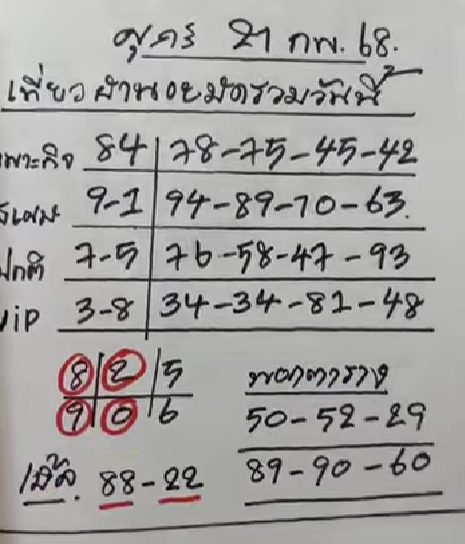 ศุกร์ 21 กพ. 68.
เที่ยวผ่านอะมัดรวมวันนี้
เพาะกิจ 84 78-75-45-42
9-1 94-89-70-63.
ปกติ 7-5 76-58-47-93
ViP 3-8 34-34-81-48
8 2 5
9 0 6
50-52-29
89-90-60
เบิ้ล. 88-22